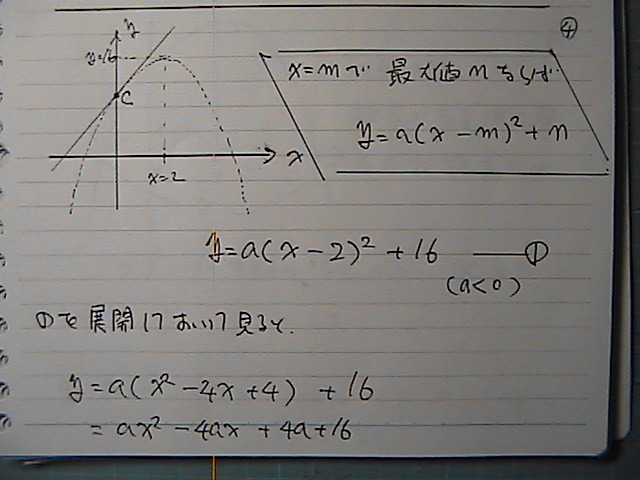 ④
y
y=16
C
x
x=2
x=mで 最大値nならば
y=a(x-m)²+n
y=a(x-2)²+16 ——①
(a<0)
①を展開しておいて見ると.
y=a(x²-4x+4)+16
=ax²-4ax+4a+16